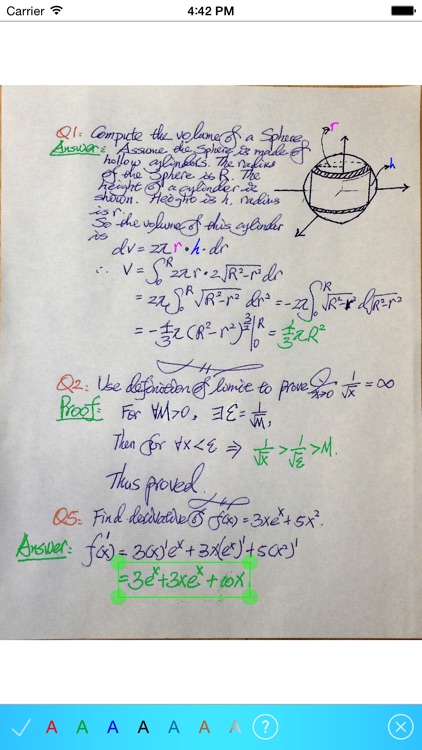 Carrier 4:42 PM
Q1: Compute the volume of a Sphere.
Answer: Assume the Sphere is made of
hollow cylinders. The radius
of the Sphere is R. The
height of a cylinder is
shown. Height is h. radius
is r.
So the volume of this cylinder
is
r
h
dv = 2π r • h • dr
∴ V = ∫₀ᴿ 2πr • 2√(R²-r²) dr
= 2π ∫₀ᴿ √(R²-r²) dr² = -2π ∫₀ᴿ √(R²-r²) d(R²-r²)
= -4/3 π (R²-r²)^(3/2) |₀ᴿ = 4/3 πR²
Q2: Use definition of limit to prove x→0 1/√x = ∞
Proof: For ∀M>0, ∃ε=1/√M,
Then for ∀x<ε ⇒ 1/√x > 1/√ε > M.
Thus proved.
Q5: Find derivative of f(x) = 3xeˣ + 5x².
Answer: f(x)' = 3(x)'eˣ + 3x(eˣ)' + 5(x²)'
= 3eˣ + 3xeˣ + 10x
A A A A A A A ?